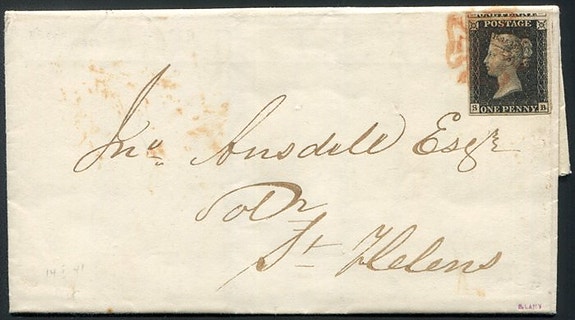 POSTAGE
ONE PENNY
B
Jno Ansdell Esqr
Solr
St Helens